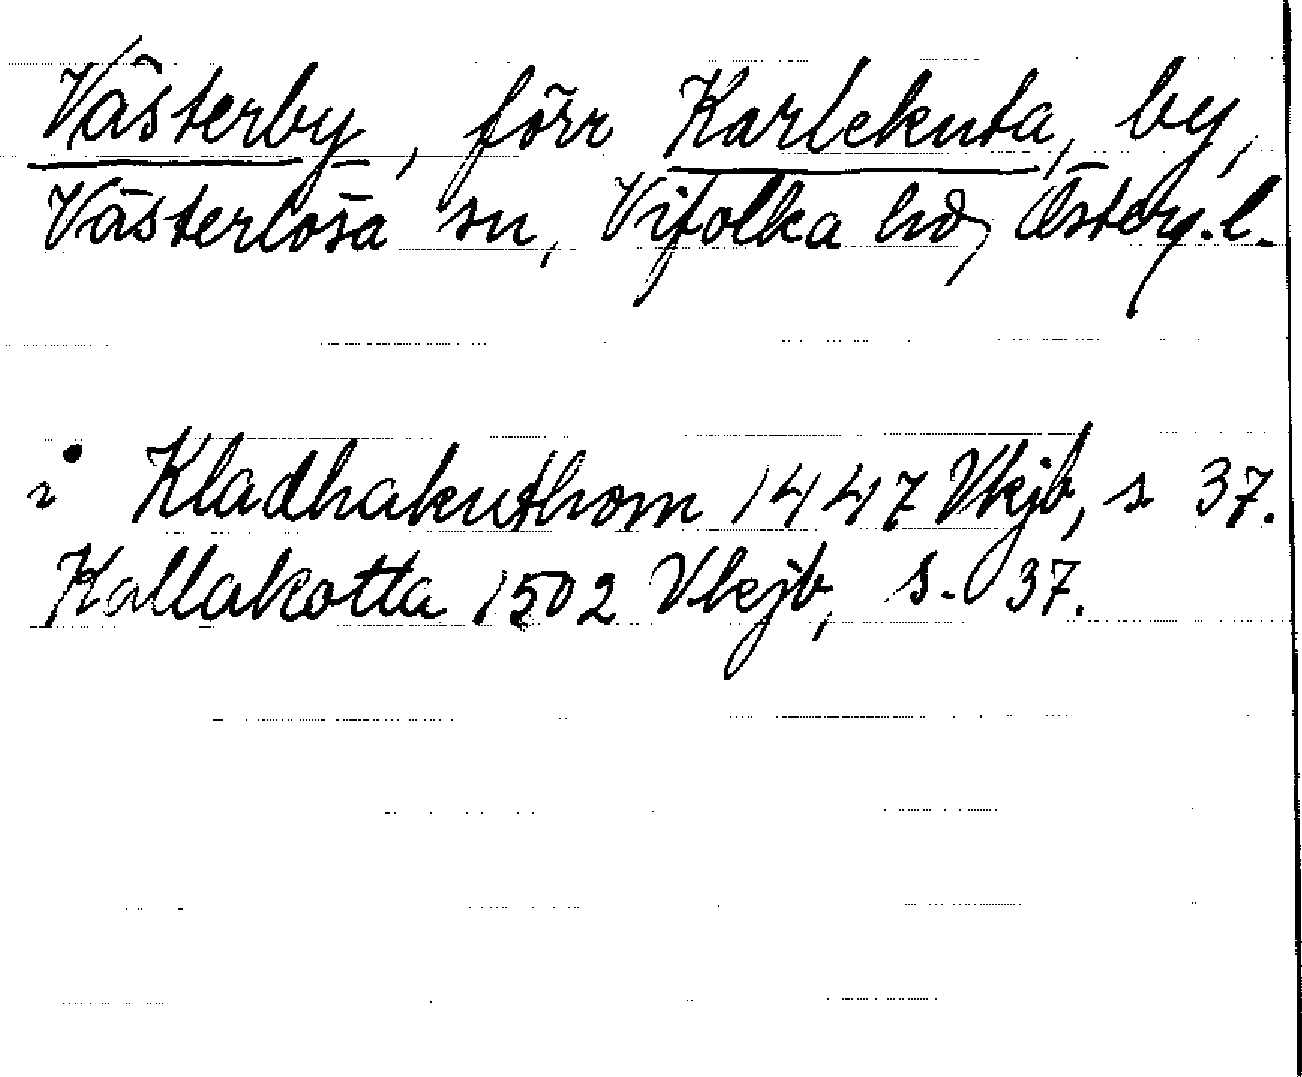 Västerby, förr Karlekuta, by,
Västerlösa sn, Vifolka hd, Österg.l.
i Kladhakuthom 1447 Vkjb, s 37.
Kallakotta 1502 Vkjb, s. 37.